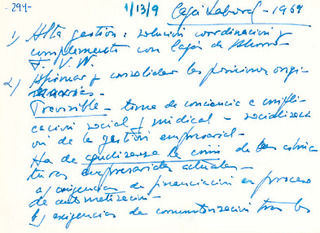 -294- 1/13/9 Caja Laboral - 1969
1) Alta gestión: relación coordinación y
complemento con Cajas de Ahorro
F. V. N.
2) Afirmar y consolidar las posiciones origi-
narias
Previsible - toma de conciencia e impli-
cación social y sindical - socializaci-
ón de la gestión empresarial.
Ha de agudizarse la crisis de las estruc-
turas empresariales actuales -
a) exigencias de financiación en proceso
de automatización -
b) exigencias de comunitarización tras las